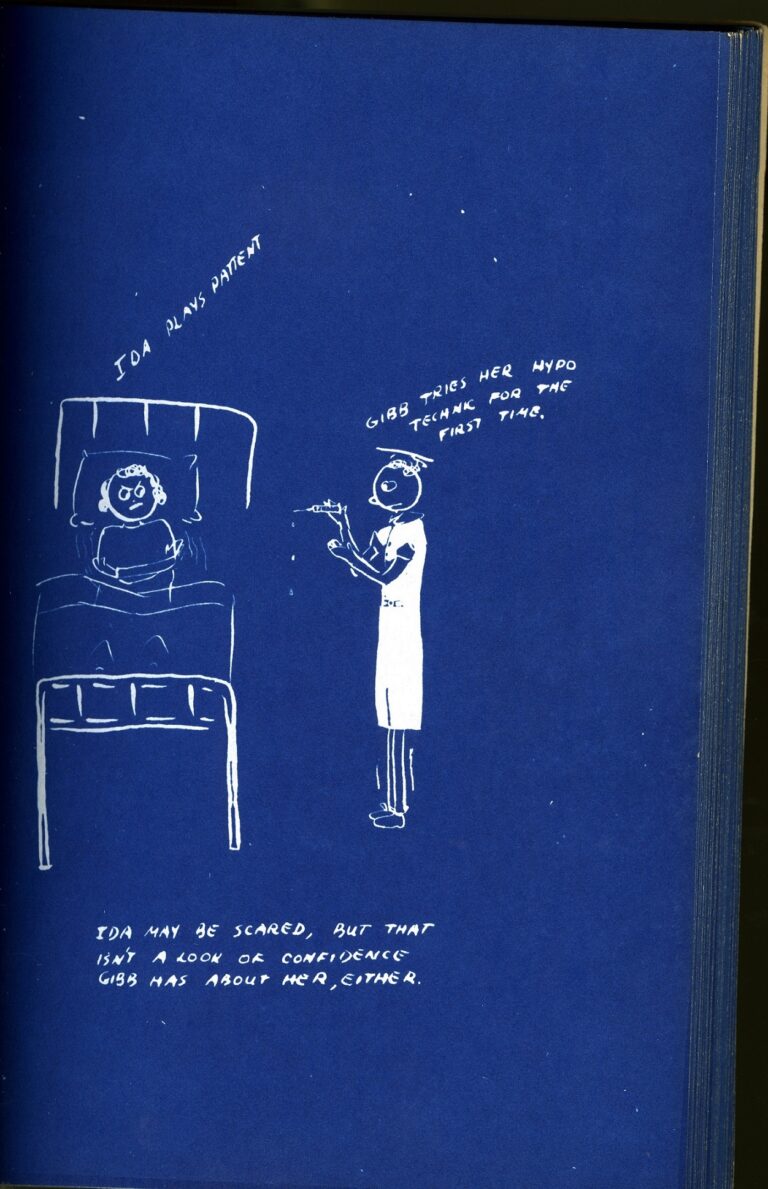 IDA PLAYS PATIENT
GIBB TRIES HER HYPO
TECHNIC FOR THE
FIRST TIME.
IDA MAY BE SCARED, BUT THAT
ISN'T A LOOK OF CONFIDENCE
GIBB HAS ABOUT HER, EITHER.